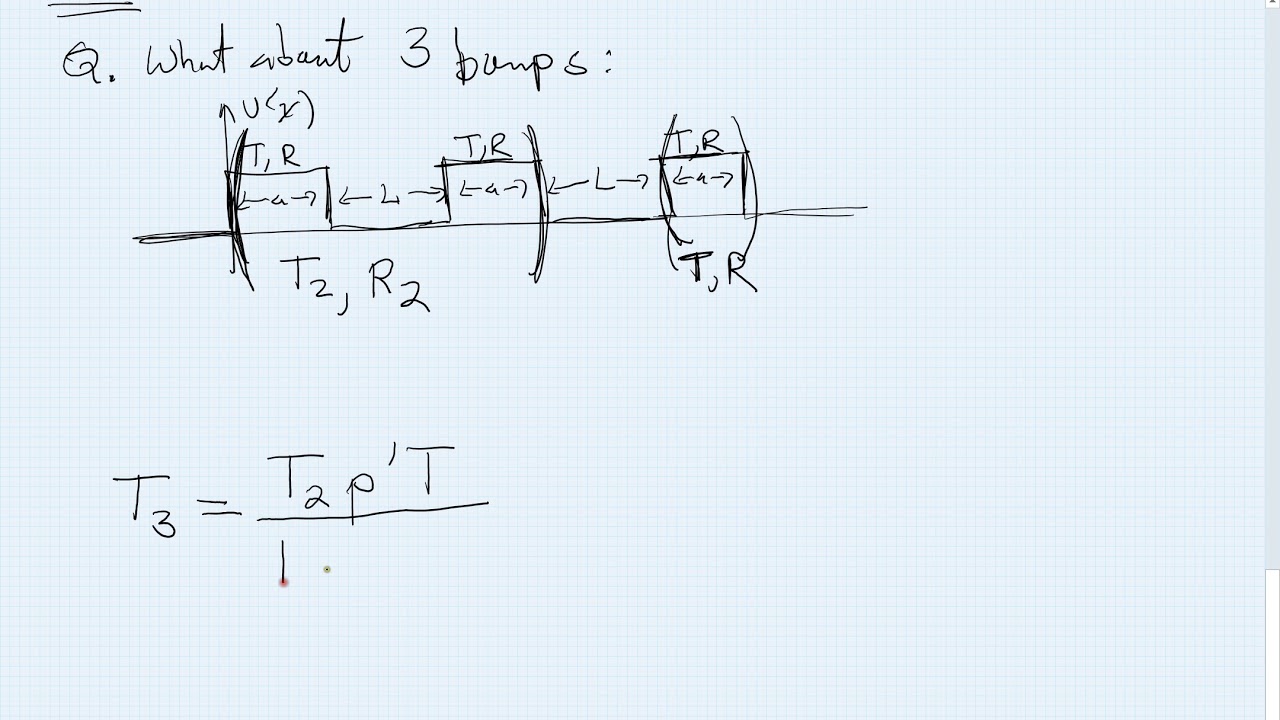 Q. What about 3 bumps:
U(x)
T, R
T,R
T,R
←a→
←L→
←a→
←L→
←a→
T₂, R₂
T,R
T₃ = T₂ p' T
1